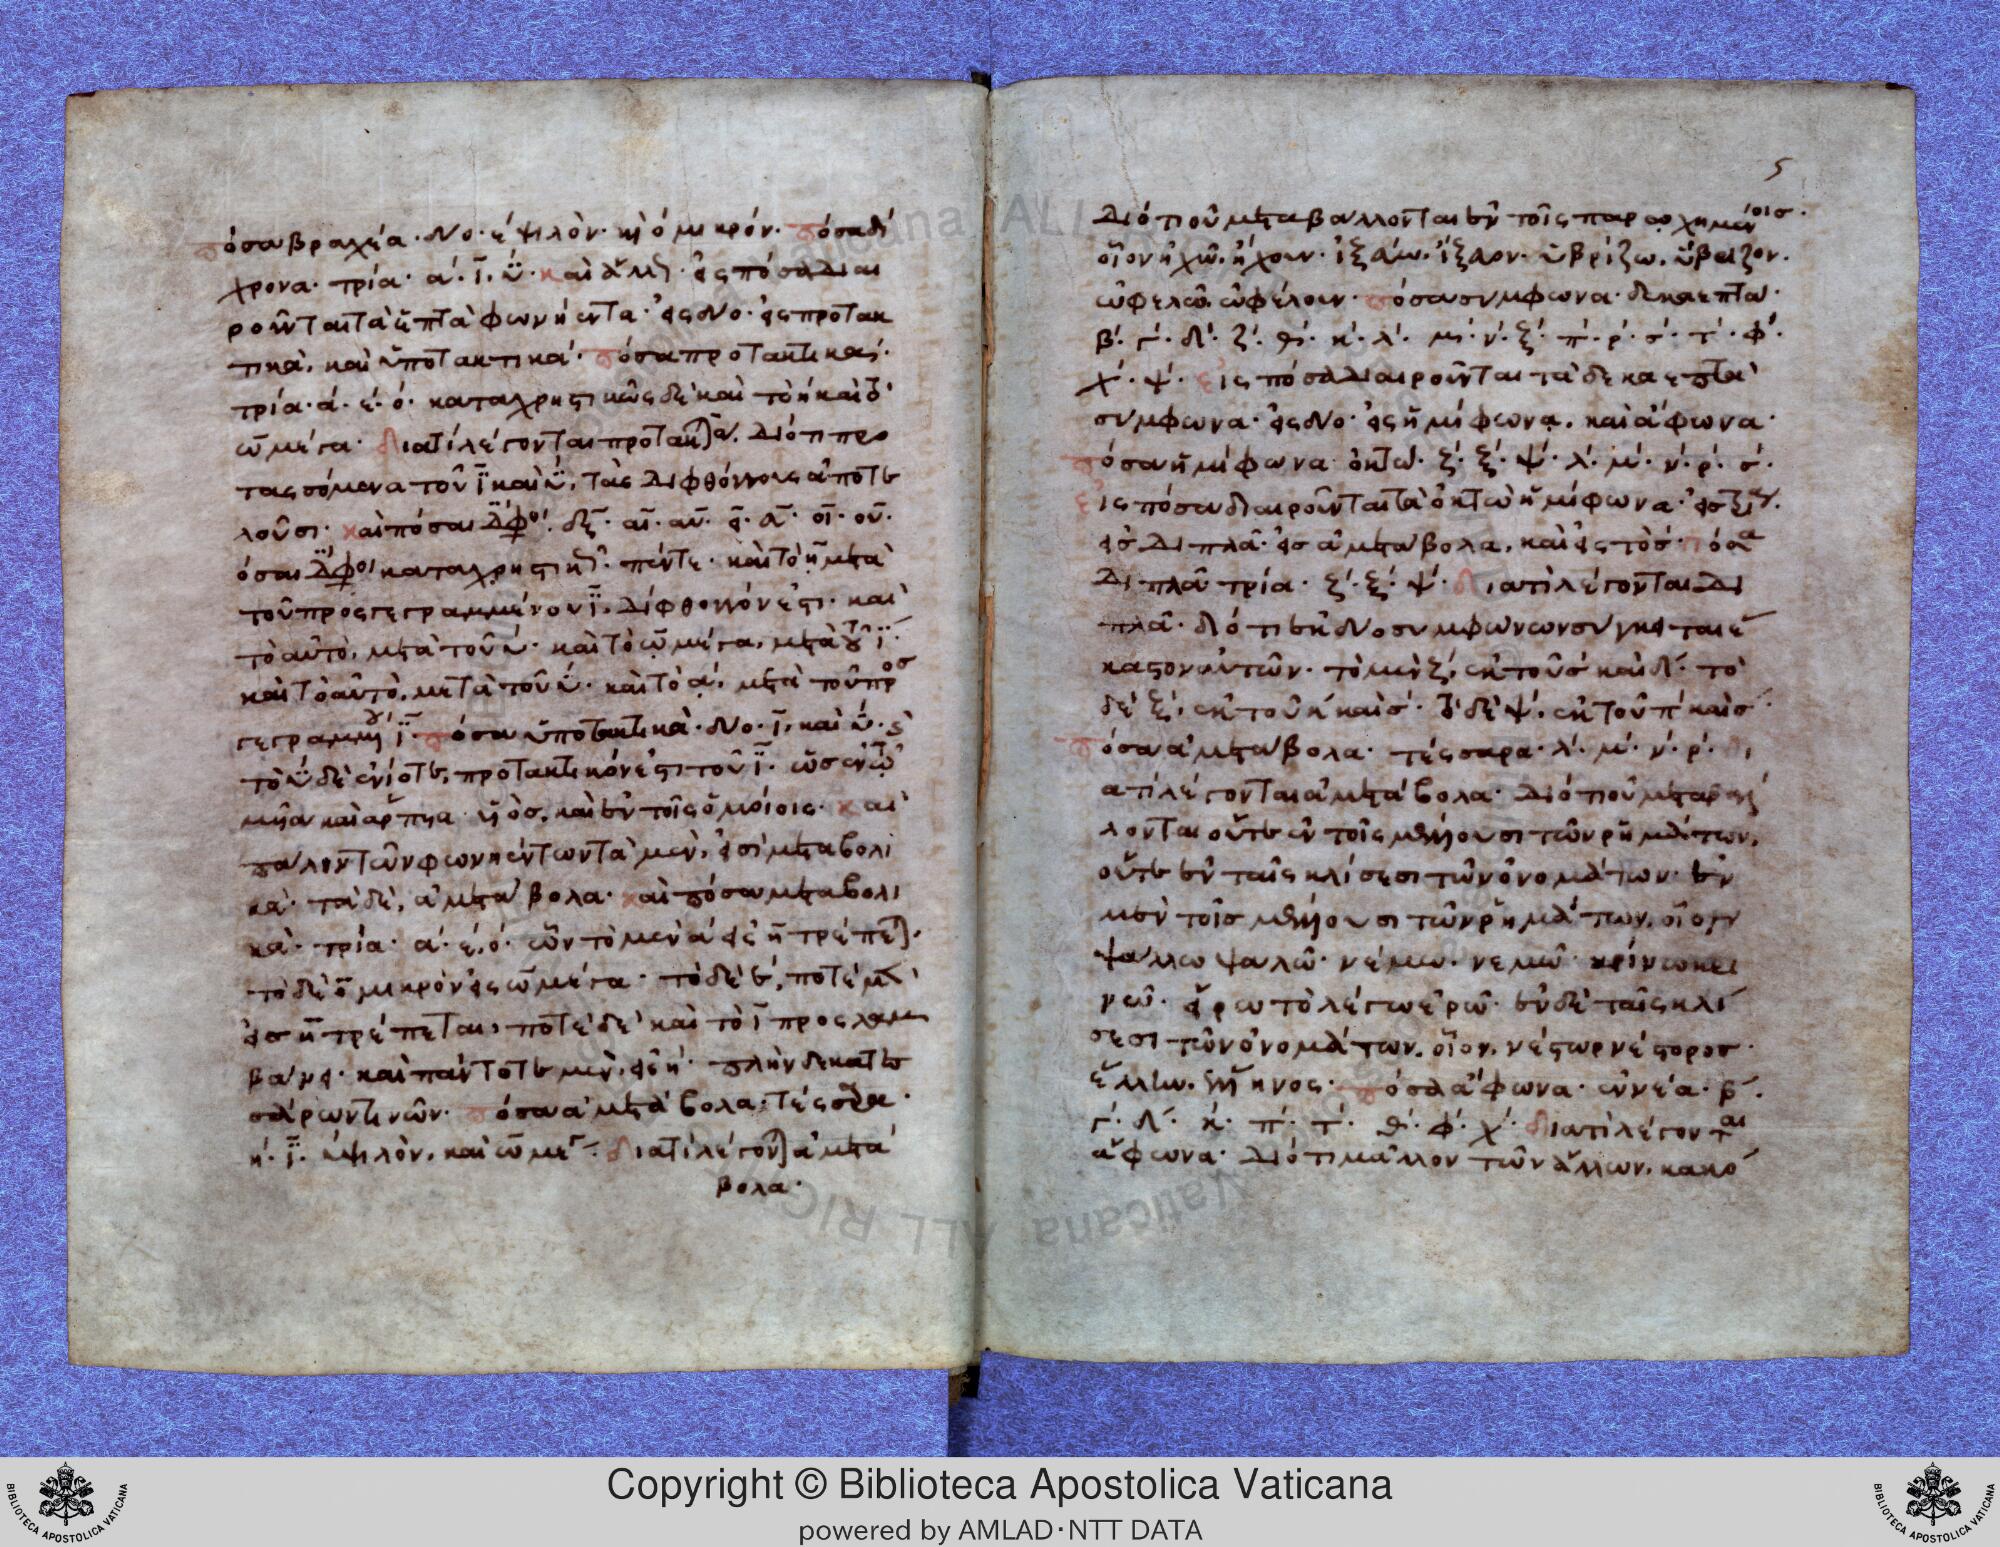 πόσα βραχέα· δύο· ἒ ψιλὸν· κ(αὶ) ὂ μικρόν. πόσα δί
χρονα· τρία· ά. ϊ. ϋ· καὶ ἄλλ(ως)· εἰς πόσα διαι
ροῦνται τὰ ἑπτὰ φωνήεντα· εἰς δύο· εἰς προτακ
τικὰ, καὶ ὑποτακτικά· πόσα προτακτικά·
τρία· ά· έ· ό· καταχρηστικῶς δὲ καὶ τὸ ή καὶ τὸ
ὦ μέγα· διατί λέγονται προτακτικά. διότι προ
τασσόμενα τοῦ ϊ καὶ ϋ, τὰς διφθόγγους ἀποτε
λοῦσι· καὶ πόσαι δίφθογγοι. ἕξ· αι· αυ· ει· ευ· οι· ου·
ὅσαι δίφθογγοι καταχρηστικαί· πέντε· καὶ τὸ η μετὰ
τοῦ προσγεγραμμένου ϊ, δίφθογγόν ἐστι· καὶ
τὸ αὐτὸ, μετὰ τοῦ ϋ· καὶ τὸ ὦ μέγα, μετὰ τοῦ ϊ·
καὶ τὸ αὐτὸ, μετὰ τοῦ ϋ· καὶ τὸ ά, μετὰ τοῦ προσ
γεγραμμένου ϊ· πόσα ὑποτακτικὰ· δύο· ϊ, καὶ ϋ·
τὸ ϋ δὲ ἐνίοτε, προτακτικόν ἐστι τοῦ ϊ· ὡς ἐν τῶ
μῦια καὶ ἅρπυια υἱὸς, καὶ ἐν τοῖς ὁμοίοις· καὶ
πάλιν τῶν φωνηέντων τὰ μὲν, εἰσὶ μεταβολι
κά· τὰ δὲ, ἀμετάβολα· καὶ πόσα μεταβολι
κὰ· τρία· ά· έ, ό· ὧν τὸ μὲν ά εἰς ῆ τρέπεται·
τὸ δὲ ὂ μικρὸν εἰς ὦ μέγα· τὸ δὲ ἒ, ποτὲ μὲν
εἰς ῆ τρέπεται, ποτὲ δὲ καὶ τὸ ϊ προσλαμ
βάνει· καὶ πάντοτε μὲν, εἰς ή· πλὴν δεκατε
σσάρων τινῶν· πόσα ἀμετάβολα· τέσσαρα·
ή· ϊ· ὒ ψιλὸν, καὶ ὦ μέγα· διατί λέγονται ἀμετά
βολα·
5
διότι οὐ μεταβάλλονται ἐν τοῖς παρωχημένοις·
οἷον ἠχῶ, ἤχουν· ἰξεύω, ἴξευον· ὑβρίζω, ὕβριζον.
ὠφελῶ, ὠφέλουν· πόσα σύμφωνα· δεκαεπτά·
β· γ· δ· ζ· θ· κ· λ· μ· ν· ξ· π· ρ· σ· τ· φ·
χ· ψ· εἰς πόσα διαιροῦνται τὰ δεκαεπτὰ
σύμφωνα· εἰς δύο· εἰς ἡμίφωνα, καὶ ἄφωνα·
πόσα ἡμίφωνα ὀκτώ· ζ· ξ· ψ· λ· μ· ν· ρ· σ·
εἰς πόσα διαιροῦνται τὰ ὀκτὼ ἡμίφωνα· εἰς τρία.
εἰς διπλᾶ· εἰς ἀμετάβολα, καὶ εἰς τὸ σ· πόσα
διπλᾶ τρία· ζ· ξ· ψ· διατί λέγονται δι
πλᾶ· διότι ἐκ δύο συμφώνων σύγκειται ἕ
καστον αὐτῶν· τὸ μὲν ζ, ἐκ τοῦ σ καὶ δ· τὸ
δὲ ξ, ἐκ τοῦ κ καὶ σ· τὸ δὲ ψ, ἐκ τοῦ π καὶ σ·
πόσα ἀμετάβολα· τέσσαρα· λ· μ· ν· ρ· δι
ατί λέγονται ἀμετάβολα· διότι οὐ μεταβάλ
λονται οὔτε ἐν τοῖς μέλλουσι τῶν ῥημάτων,
οὔτε ἐν ταῖς κλίσεσι τῶν ὀνομάτων· ἐν
μὲν τοῖς μέλλουσι τῶν ῥημάτων, οἷον
ψάλλω ψαλῶ· νέμω. νεμῶ· κρίνω κρι
νῶ· εἴρω τὸ λέγω ἐρῶ· ἐν δὲ ταῖς κλί
σεσι τῶν ὀνομάτων, οἷον, νέστωρ νέστορος·
ἕλλην. ἕλληνος· πόσα ἄφωνα· ἐννέα· β·
γ· δ· κ· π· τ· θ· φ· χ· διατί λέγονται
ἄφωνα· διότι μᾶλλον τῶν ἄλλων, κακό
Copyright © Biblioteca Apostolica Vaticana
powered by AMLAD·NTT DATA
BIBLIOTECA APOSTOLICA VATICANA
BIBLIOTECA APOSTOLICA VATICANA